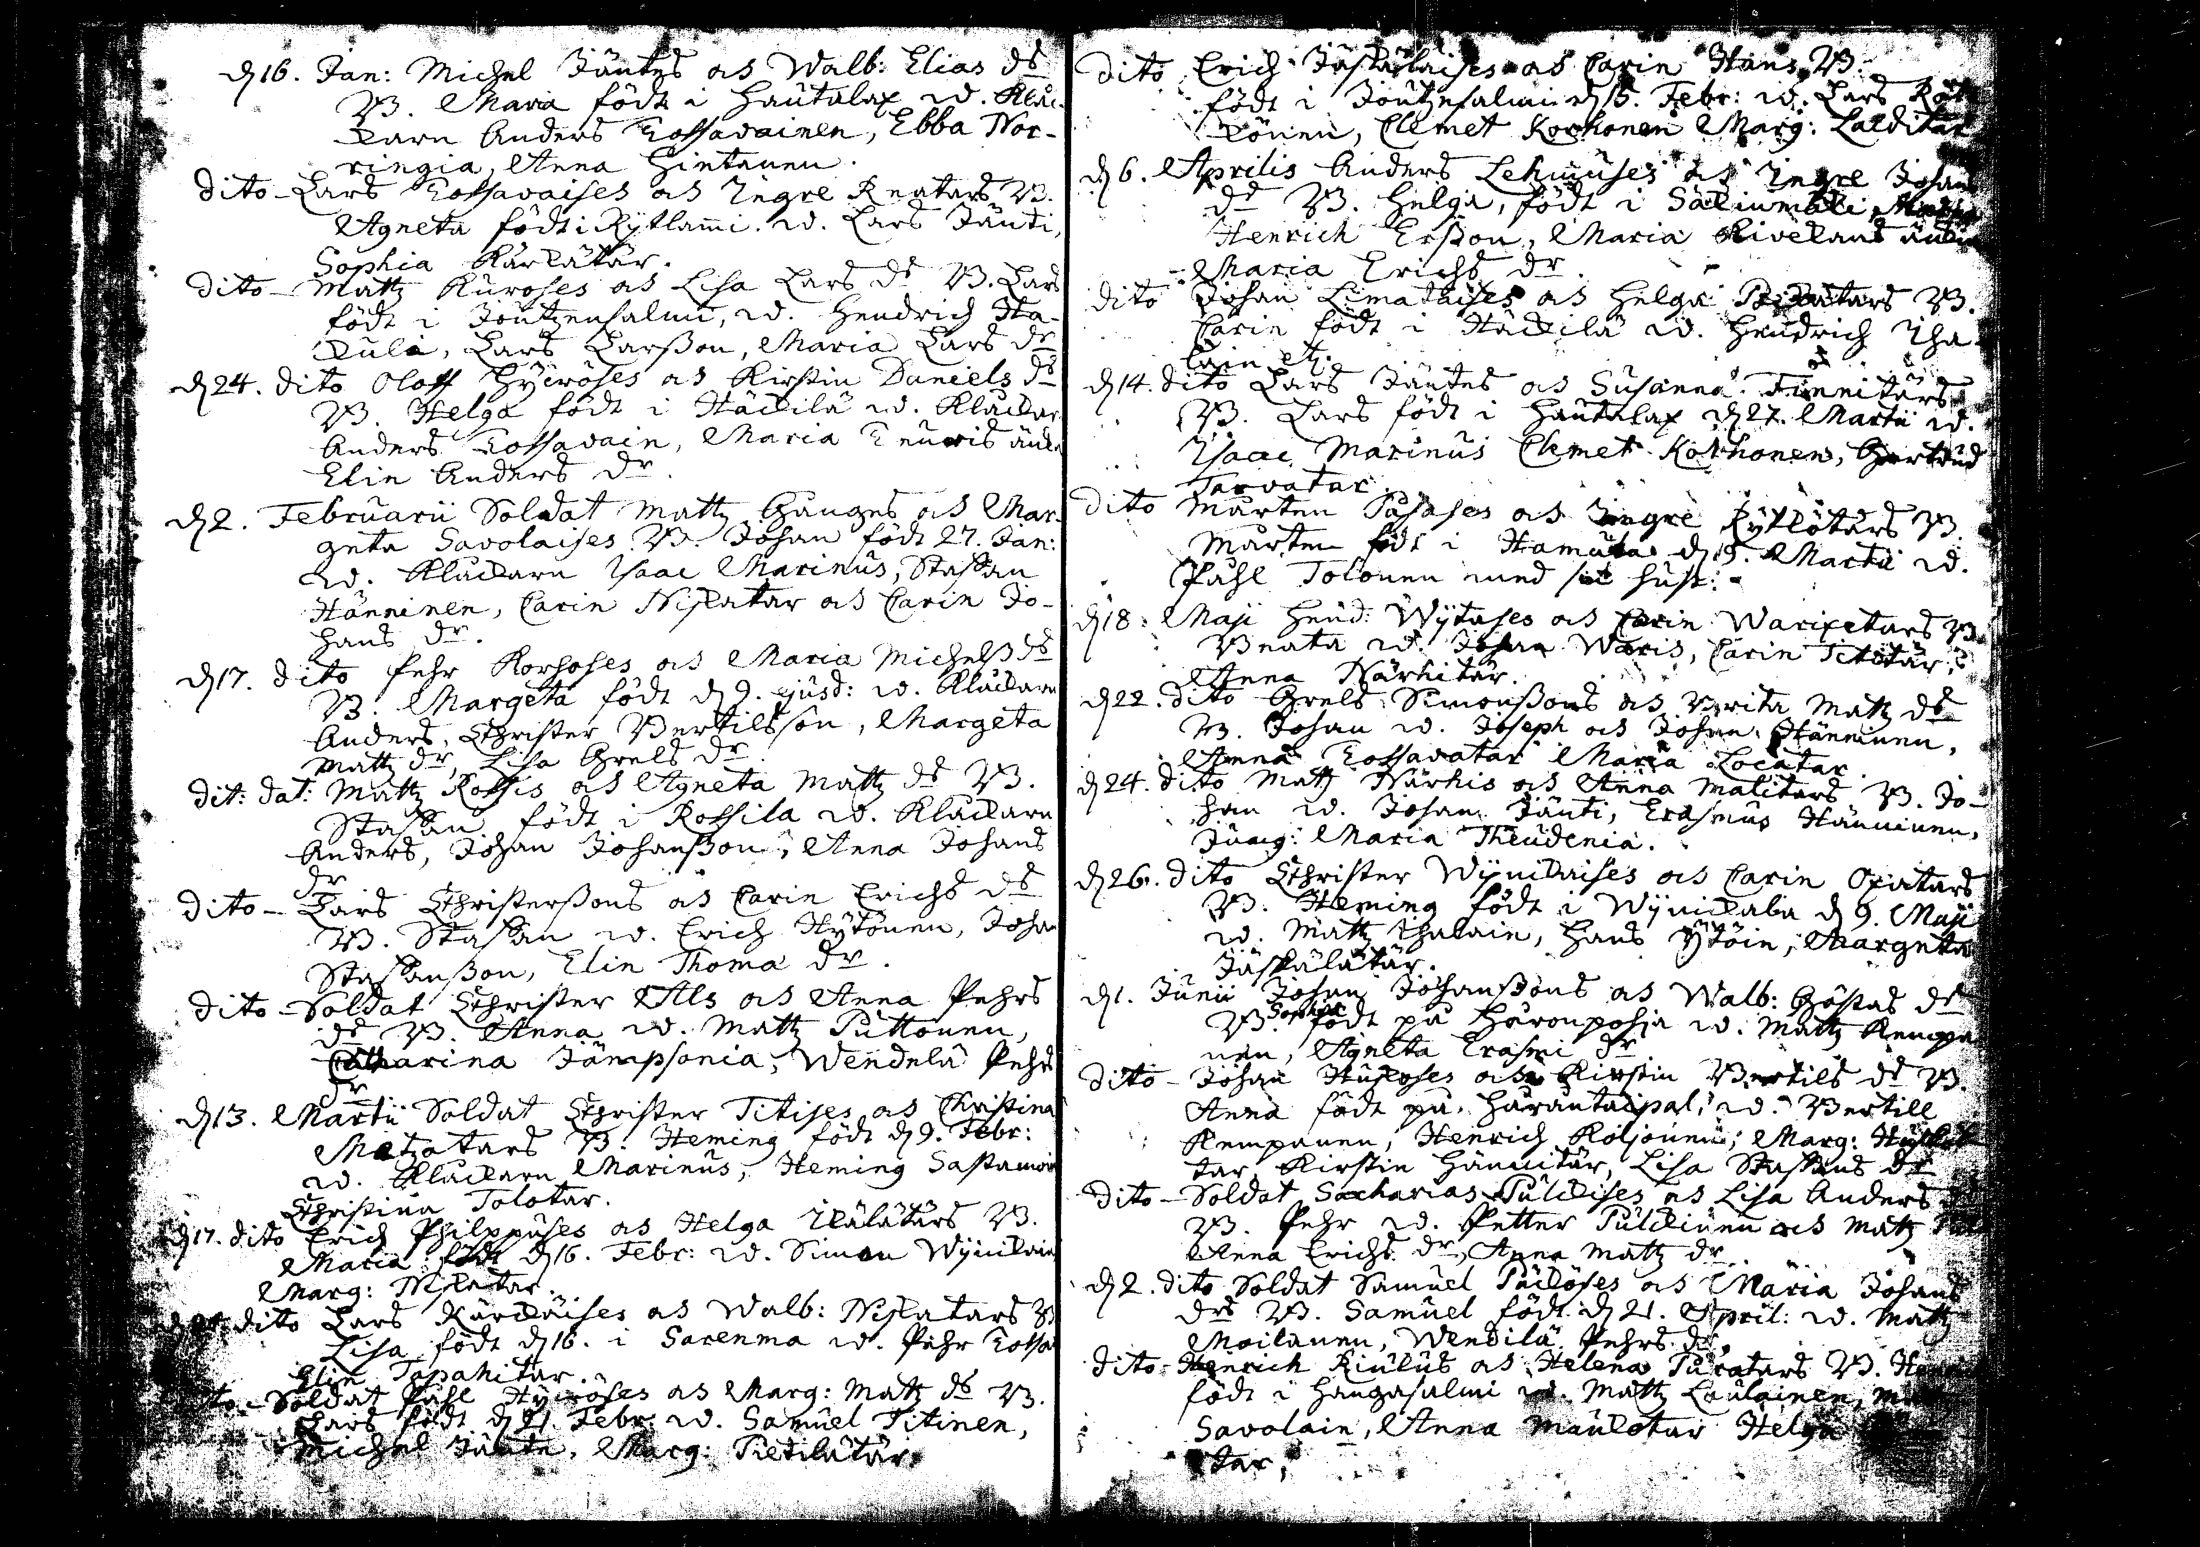 d 16. Jan: Michel Jäntes as Walb: Elias ds
B. Maria födt i Hautalax w. Klåc-
karn Anders Kossavainen, Ebba Nor-
ringia, Anna Hintanen.
dito - Lars Kossavaises as Ingre Knatars B.
Agneta födt i Kytlami. w. Lars Jänti,
Sophia Kärkätär.
dito - Mattz Kuroses as Lisa Lars ds B. Lars
födt i Joutzensalmi, w. Hendrich Ha-
kuli, Lars Larsson, Maria Lars dr
d 24. dito Oloff Hyiröses as Kirstin Daniels ds
B. Helga födt i Häckilä w. Klåckar
Anders Kossavain, Maria
Elin Anders dr.
d 2. Februarii Soldat Mattz Ganges as Mar-
geta Savolaises B. Johan födt 27. Jan:
w. Klåckarn Isaac Marinus, Staffan
Hänninen, Carin Niskatar as Carin Jo-
hans dr.
d 17. dito Pehr Korhoses as Maria Michels ds
B. Margeta födt d 9. ejusd: w. Klåckarn
Anders, Christer Bertilsson, Margeta
Mattz dr, Lisa Grels dr
dit: dat: Mattz Rossis as Agneta Mattz ds B.
Staffan födt i Rossila w. Klåckarn
Anders, Johan Johansson, Anna Johans
dr
dito - Lars Christerssons as Carin Erichs ds
B. Staffan w. Erich Hytönen, Johan
Staffansson, Elin Thoma dr.
dito - Soldat Christer Als as Anna Pehrs
ds B. Anna w. Mattz Puttonen,
Catharina Jämpsonia, Wendela Pehrs
dr
d 13. Martii Soldat Christer Titises as Christina
Metzatars B. Heming födt d 9. Febr:
w. Klåckarn Marinus, Heming Sastamoin
Christina Tolotar.
d 17. dito Erich Philppuses as Helga Ikälätärs B.
Maria födt d 16. Febr: w. Simon Wynikain
Marg: Niskatar.
dito Lars Kärkäises as Walb: Niskatars B
Lisa födt d 16. i Sarenma w. Pehr Kossa
Elin Tapanitar.
dito - Soldat Påhl Hyiröses as Marg: Mattz ds B.
Lars födt d 21. Febr. w. Samuel Titinen,
Michel Jänte, Marg: Pietilätär.
dito Erich Jäskäläises as Carin Hans B.
födt i Joutzensalmi d 15. Febr: w. Lars
könen, Clemet Korhonen Marg:
d 6. Aprilis Anders Lehmuses as Ingre Johan
ds B. Helga, födt i Säkinmäki,
Henrich Ersson, Maria
Maria Erichs dr.
dito Johan Limataises as Helga B.
Carin födt i Häckilä w. Hendrich Iha
lain etz.
d 14. dito Lars Jäntes as Susanna Finnitärs
B. Lars födt i Hautalax d 27. Martii w.
Isaac Marinus Clemet Korhonen, Gertrud
Tarvatar.
dito Mårten Pasases as Ingre Kytlötärs B.
Mårten födt i Hamula d 19. Martii w.
Påhl Tolonen med sin hust:
d 18. Maji Hend: Wytases as Carin Warixetars B.
Beata w. Johan Waris, Carin Titotär,
Anna Närhitär.
d 22. dito Grels Simonssons as Brita Mattz ds
B. Johan w. Joseph as Johan Hänninen,
Anna Kossavatar Maria Locatar.
d 24. dito Mattz Närhis as Anna Malitars B. Jo-
han w. Johan Jänti, Erasmus Hänninen,
Jungf: Maria Theudenia.
d 26. dito Christer Wynikaises as Carin Oxatars
B. Heming födt i Wynickala d 9. Maji
w. Mattz Ihalain, Hans Ytöin, Margeta
Jäskälätär.
d 1. Junii Johan Johanssons as Walb: Göstas ds
B. Sophia födt på Haronpohja w. Mattz Kempa
nen, Agneta Erasmi dr
dito - Johan Huskoses as Kirstin Bertils ds B.
Anna födt på Harantaipal, w. Bertill
Kempanen, Henrich Koljonen, Marg:
tar Kirstin Hännitär, Lisa Staffans dr
dito - Soldat Sacharias Pulckises as Lisa Anders
B. Pehr w. Petter Pulckinen as Mattz
Anna Erichs dr, Anna Mattz dr
d 2. dito Soldat Samuel Päiöses as Maria Johans
drs B. Samuel födt d 21. April: w. Mattz
Moilanen, Wendila Pehrs dr,
dito - Henrich Kiulus as Helena Puratars B.
födt i Hangasalmi w. Mattz Laulainen,
Savolain, Anna Maulotar Helga
tar,